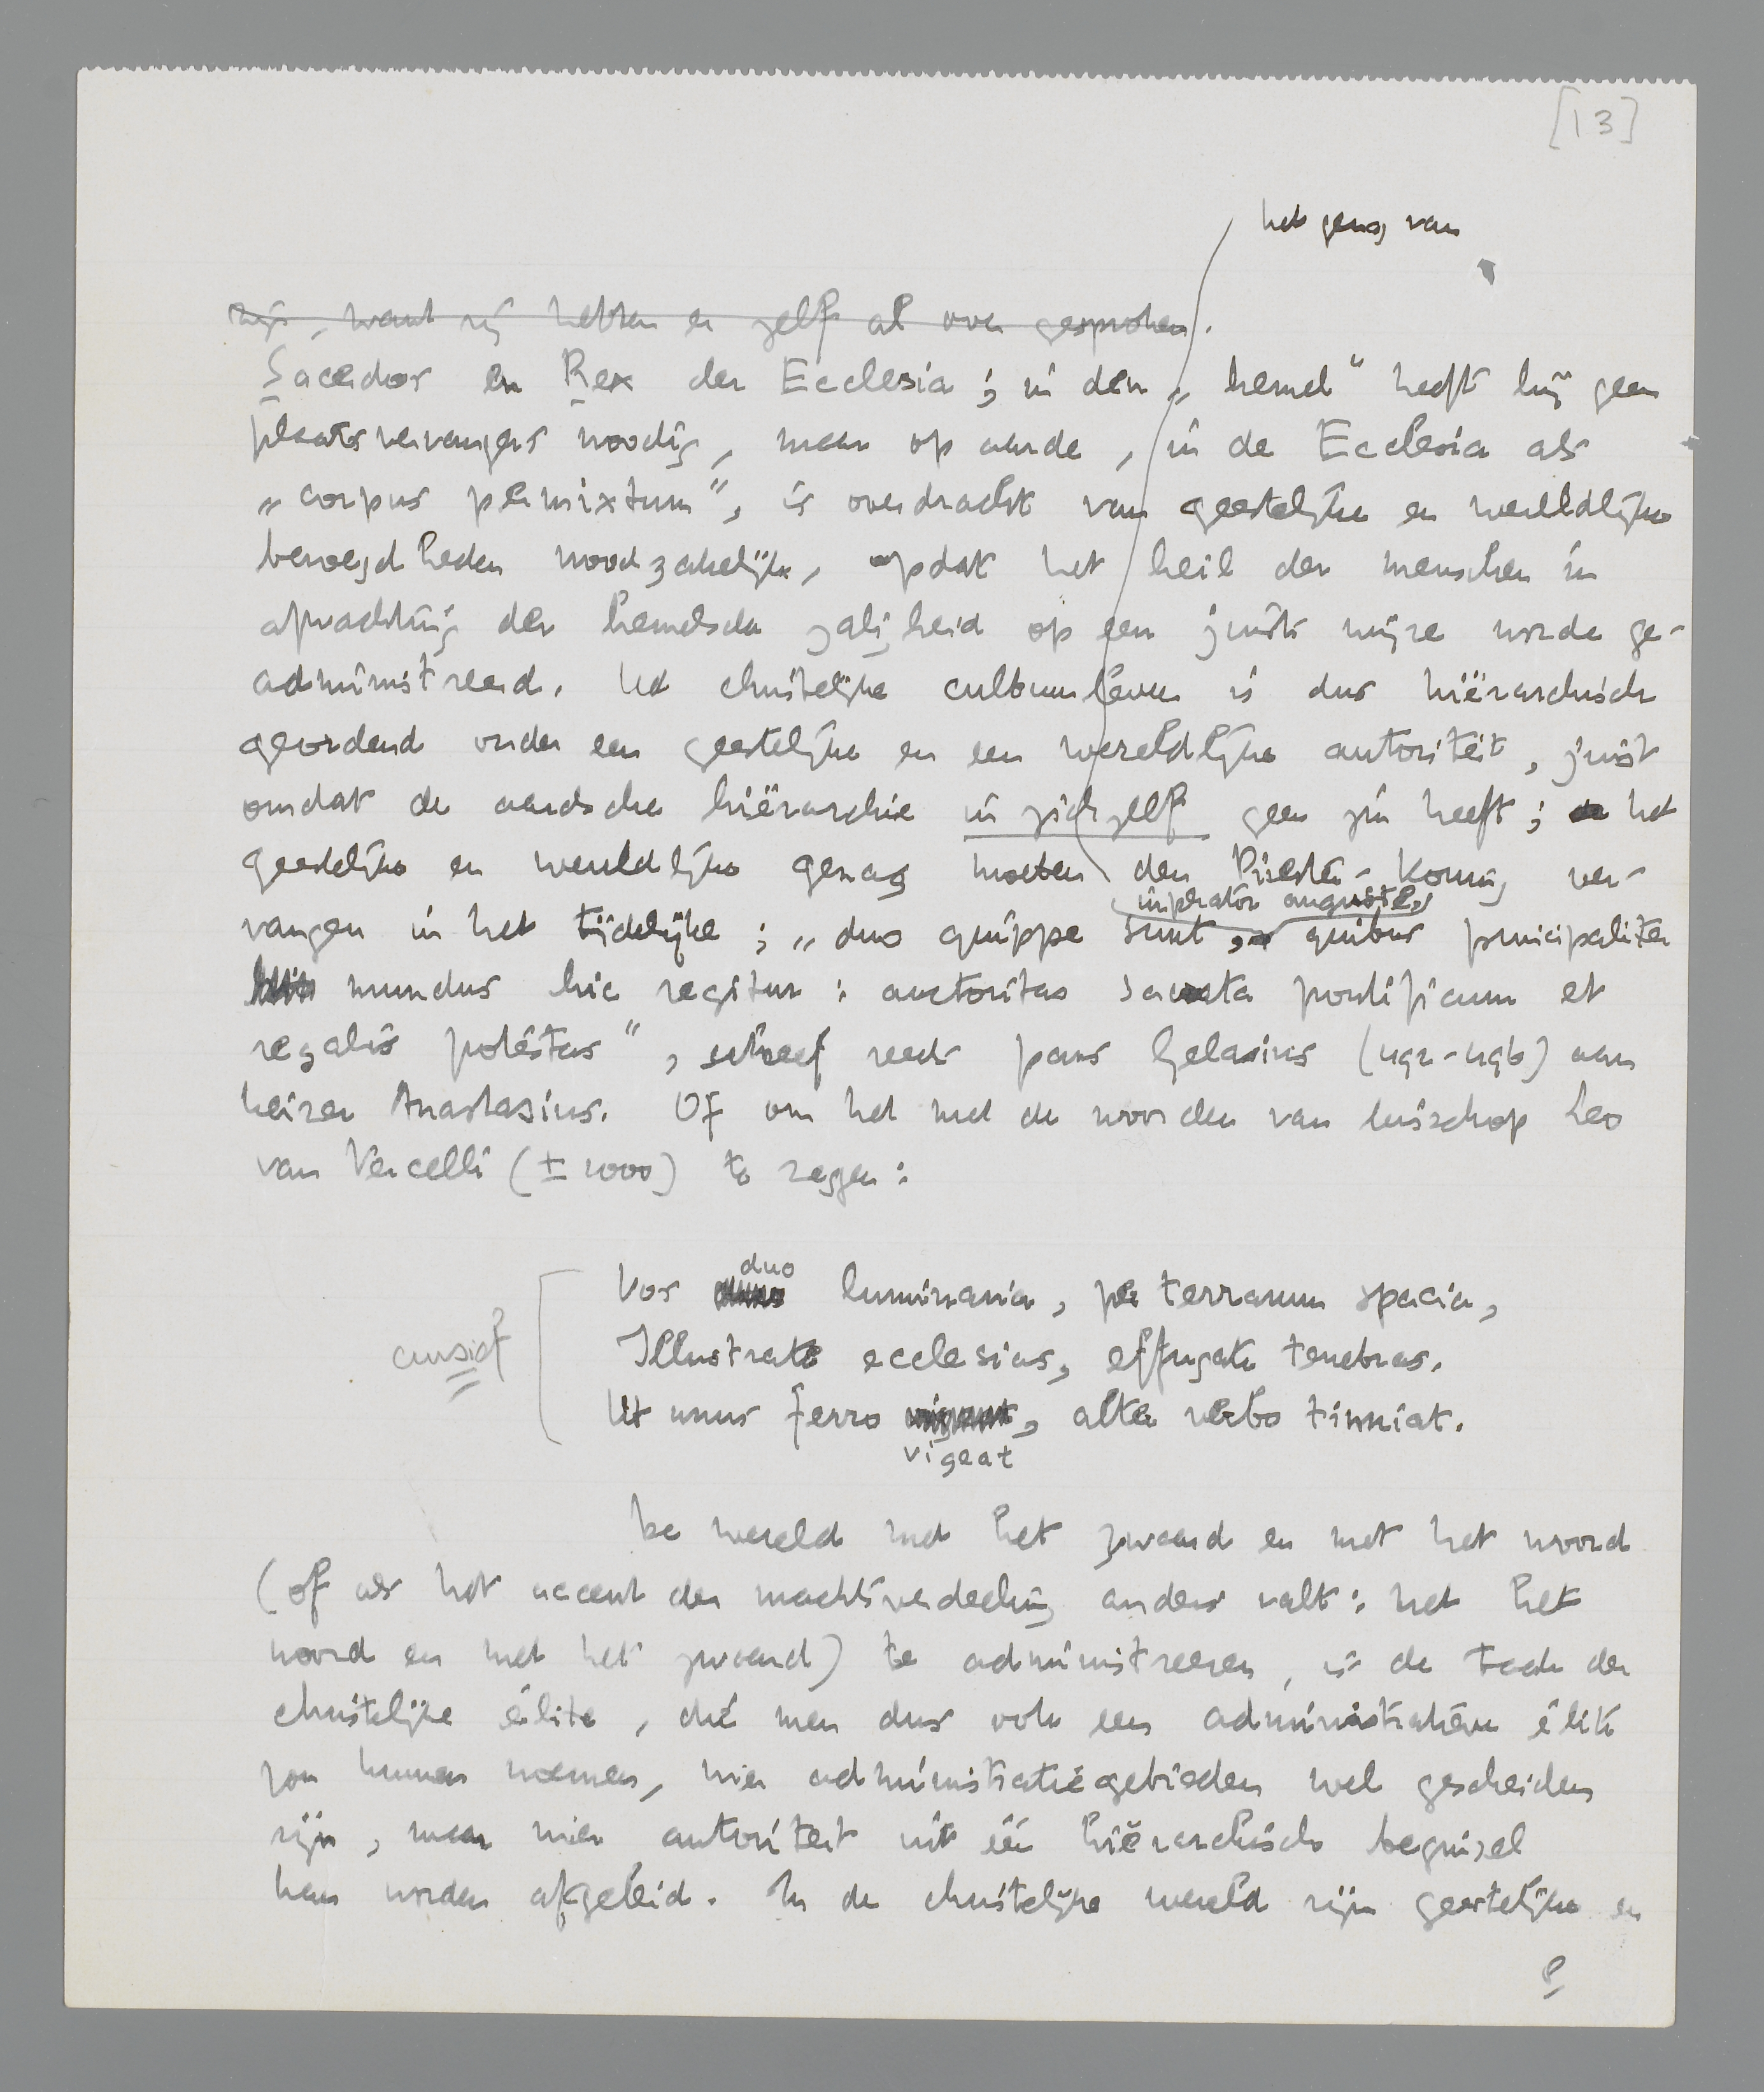 [13]
het gezag van
zijn, want zij hebben er zelf al over gesproken.
Sacerdos en Rex der Ecclesia; in den „hemel” heeft hij geen
plaatsvervangers noodig, maar op aarde, in de Ecclesia als
„corpus permixtum”, is overdracht van geestelijke en wereldlijke
bevoegdheden noodzakelijk, opdat het heil der menschen in
afwachting der hemelsche zaligheid op een juiste wijze worde ge-
administreerd. Het christelijke cultuurleven is dus hiërarchisch
geordend onder een geestelijke en een wereldlijke autoriteit, juist
omdat de aardsche hiërarchie in zichzelf geen zin heeft; het
geestelijke en wereldlijke gezag moeten den Priester-Koning ver-
imperator auguste,
vangen in het tijdelijke; „duo quippe sunt, quibus principaliter
mundus hic regitur: auctoritas sacrata pontificum et
regalis potestas”, schreef reeds paus Gelasius (492-496) aan
keizer Anastasius. Of om het met de woorden van bisschop Leo
van Vercelli (± 1000) te zeggen:
duo
Vos luminaria, per terrarum spacia,
cursief
Illustrate ecclesias, effugate tenebras.
Ut unus ferro, alter verbo tinniat.
vigeat
De wereld met het zwaard en met het woord
(of als het accent der machtsverdeeling anders valt: met het
woord en met het zwaard) te administreeren, is de taak der
christelijke élite, die men dus ook een administratieve élite
zou kunnen noemen, wier administratiegebieden wel gescheiden
zijn, maar wier autoriteit uit één hiërarchisch beginsel
kan worden afgeleid. In de christelijke wereld zijn geestelijke en